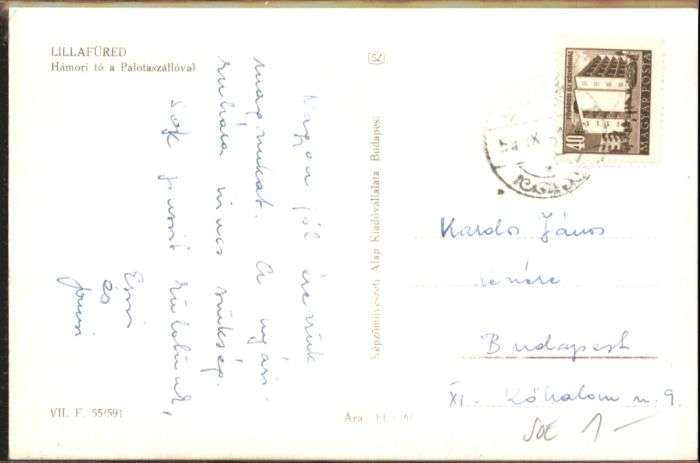 LILLAFÜRED
Hámori tó a Palotaszállóval
Nagyon jól érezzük
magunkat. A nyári
ruhára nincs szükség.
Sok puszit küldünk,
és
Képzőművészeti Alap Kiadóvállalata Budapest
40
MAGYAR POSTA
Kardos János
Budapest
XI. Kőhalom u. 9.
VII. F. 55/591
Ára
1-